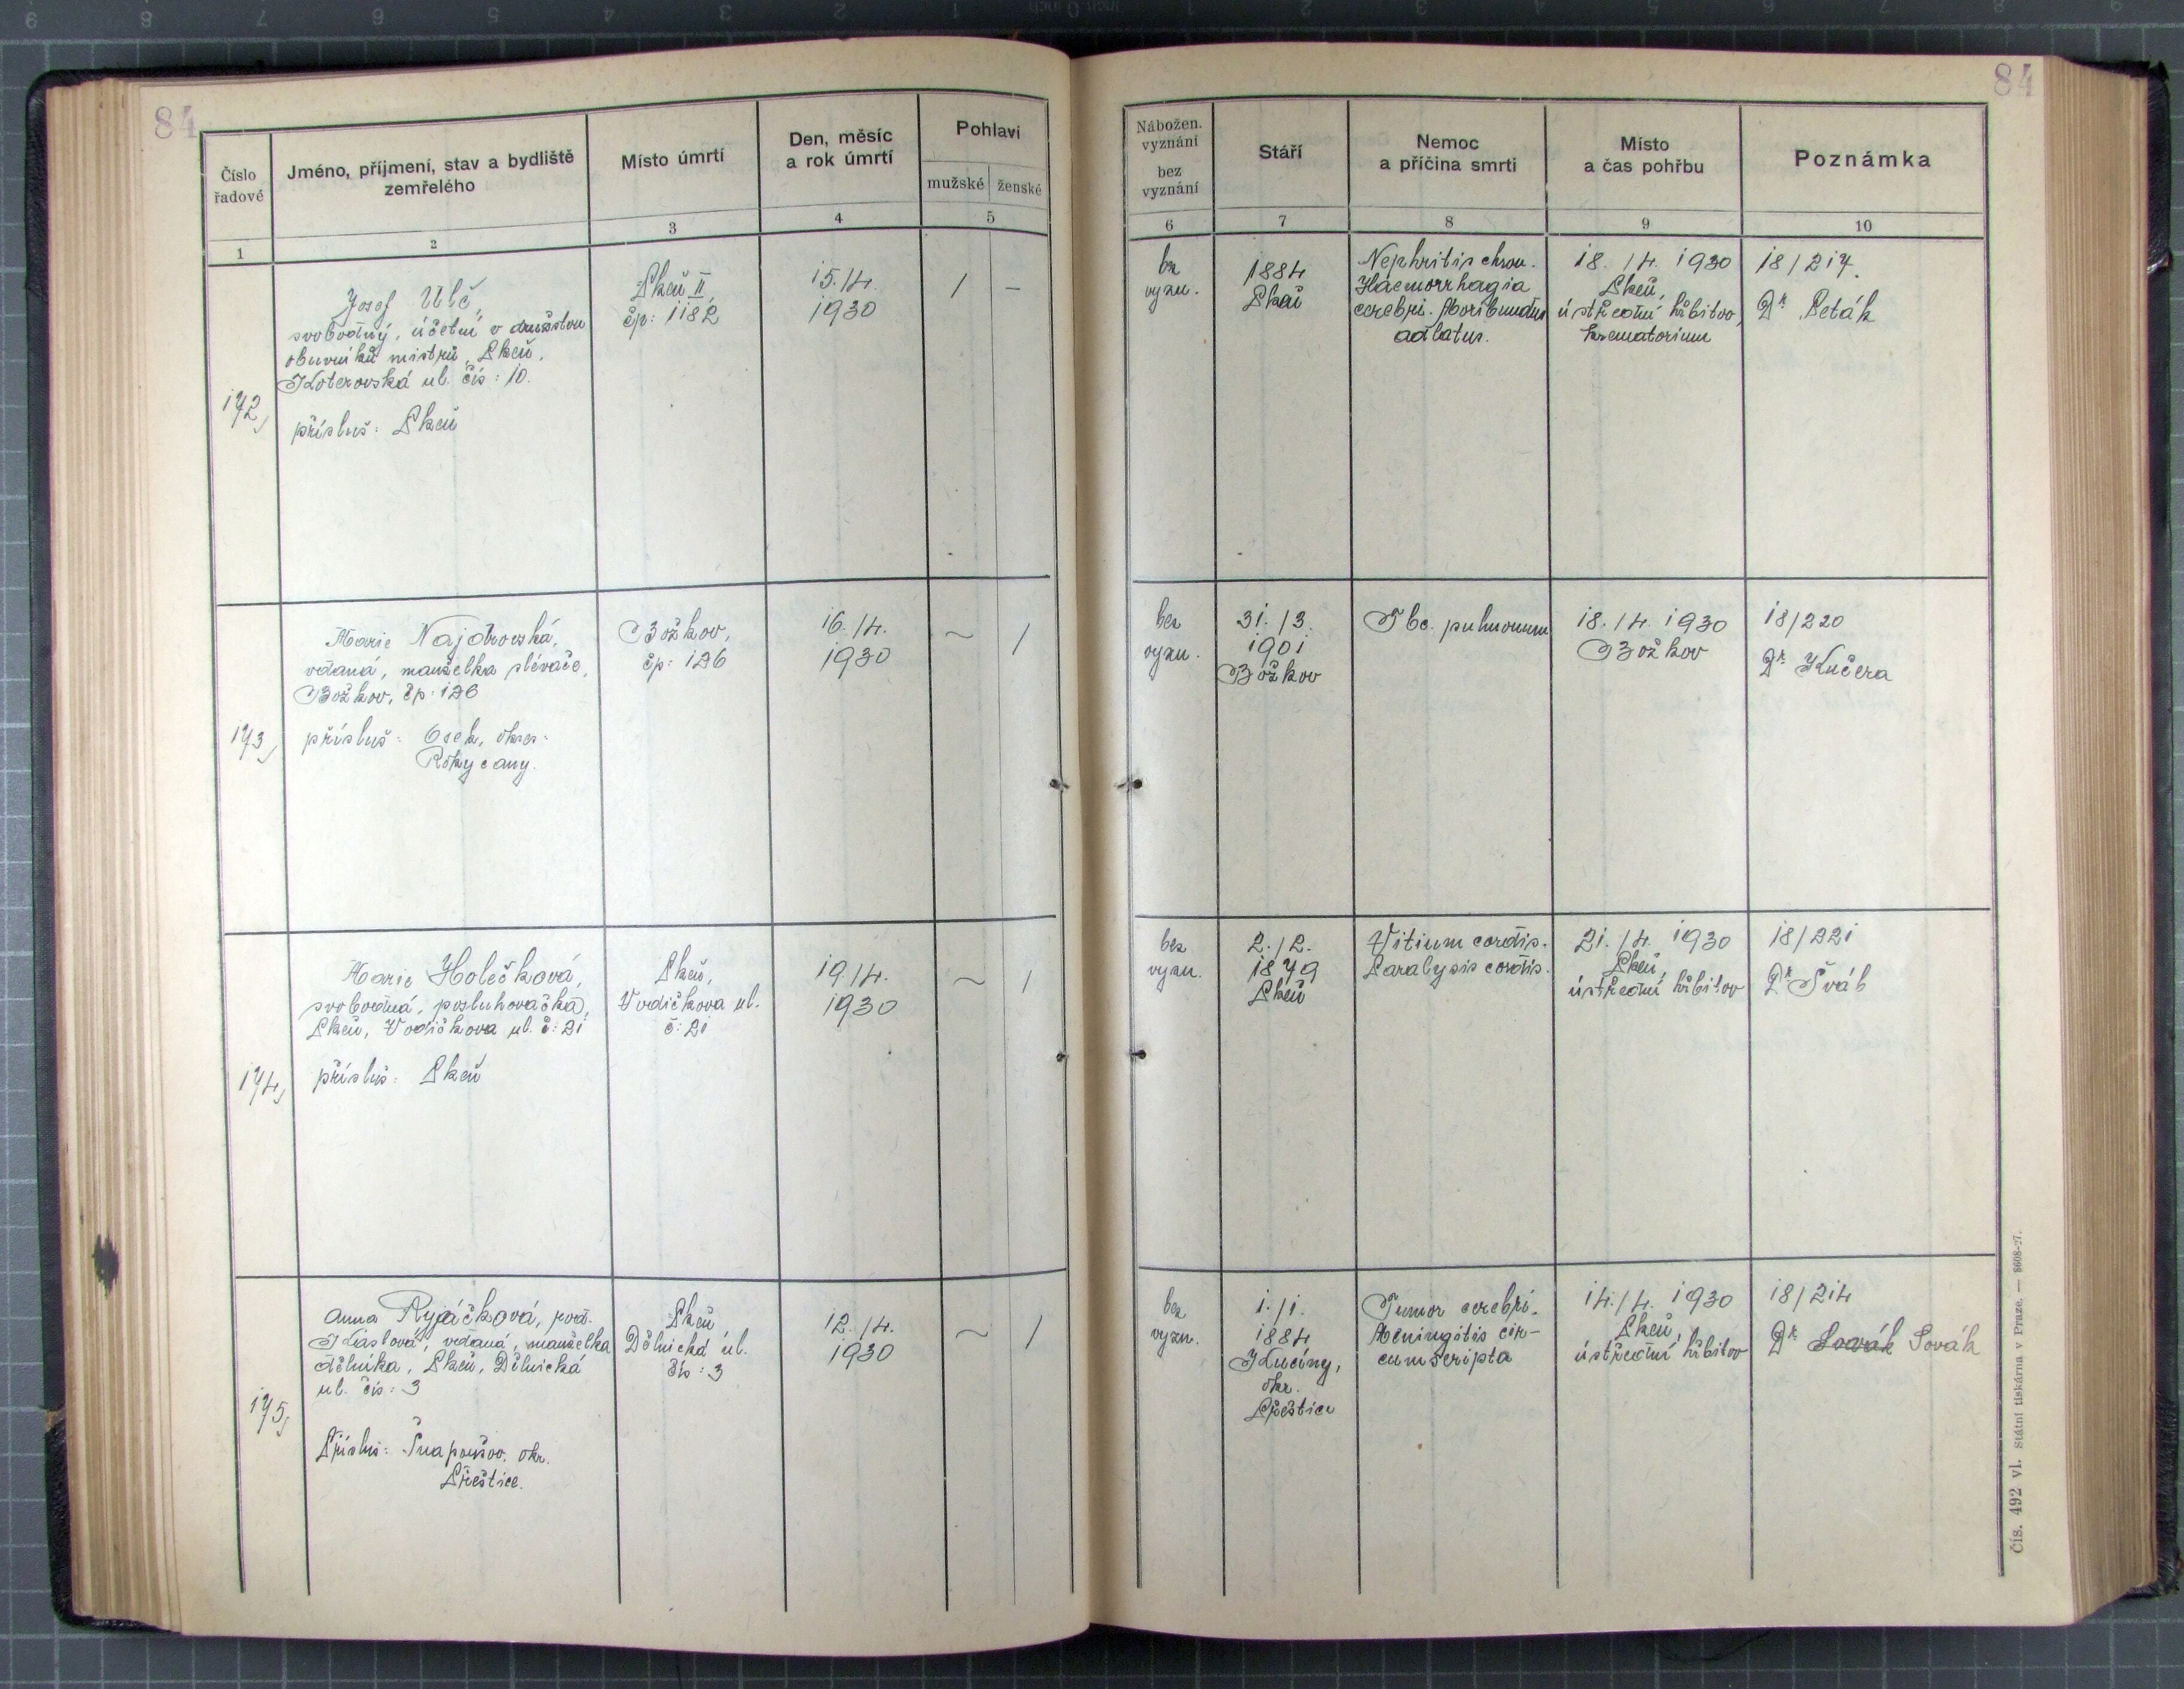 84
84
Číslo řadové
Jméno, příjmení, stav a bydliště
zemřelého
Místo úmrtí
Den, měsíc
a rok úmrtí
Pohlaví
mužské
ženské
1
2
3
4
5
Nábožen.
vyznání
bez
vyznání
Stáří
Nemoc
a příčina smrti
Místo
a čas pohřbu
Poznámka
6
7
8
9
10
172)
Josef Ulč,
svobodný, účetní v družstvu
obuvníků mistrů, Plzeň,
Koterovská ul. čís: 10.
přísluš: Plzeň
Plzeň II,
čp: 1182
15./4.
1930
/
-
bez
vyzn.
1884
Plzeň
Nephritis chron.
Haemorrhagia
cerebri. Moribundus
adlatus.
18./4. 1930
Plzeň,
ústřední hřbitov,
krematorium
18/217.
Dr. Peták
173)
Marie Najdrovská,
vdaná, manželka slévače,
Božkov, čp: 126
přísluš: Osek, okres:
Rokycany.
Božkov,
čp: 126
16./4.
1930
~
/
bez
vyzn.
31./3.
1901
Božkov
Tbc. pulmonum
18./4. 1930
Božkov
18/220
Dr. Kučera
174)
Marie Holečková,
svobodná, posluhovačka,
Plzeň, Vodičkova ul. č: 21
přísluš: Plzeň
Plzeň,
Vodičkova ul.
č: 21
19./4.
1930
~
/
bez
vyzn.
2./2.
1879
Plzeň
Vitium cordis.
Paralysis cordis.
21./4. 1930
Plzeň,
ústřední hřbitov
18/221
Dr. Šváb
175)
Anna Ryjáčková, rod.
vdaná, manželka
dělníka, Plzeň, Dělnická
ul. čís: 3
Přísluš: Šnapoušov, okr.
Přeštice.
Plzeň
Dělnická ul.
čís: 3
12./4.
1930
~
/
bez
vyzn.
1./1.
1884
okr.
Přeštice
Tumor cerebri.
Meningitis cir-
cumscripta
14./4. 1930
Plzeň,
ústřední hřbitov
18/214
Dr. Sovák Sovák
Čís. 492 vl. Státní tiskárna v Praze. — 8608-27.